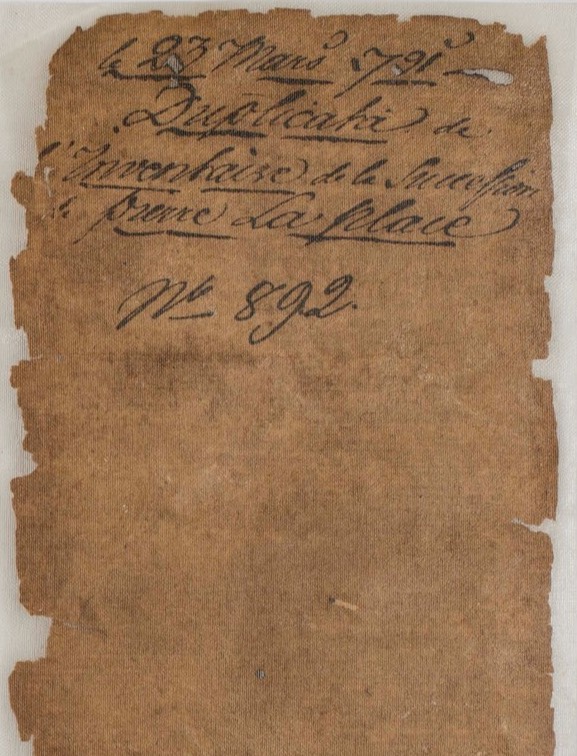 le 23 Mars 791
Duplicata de
l'Inventaire de la Succession
de pierre La place
No 892.